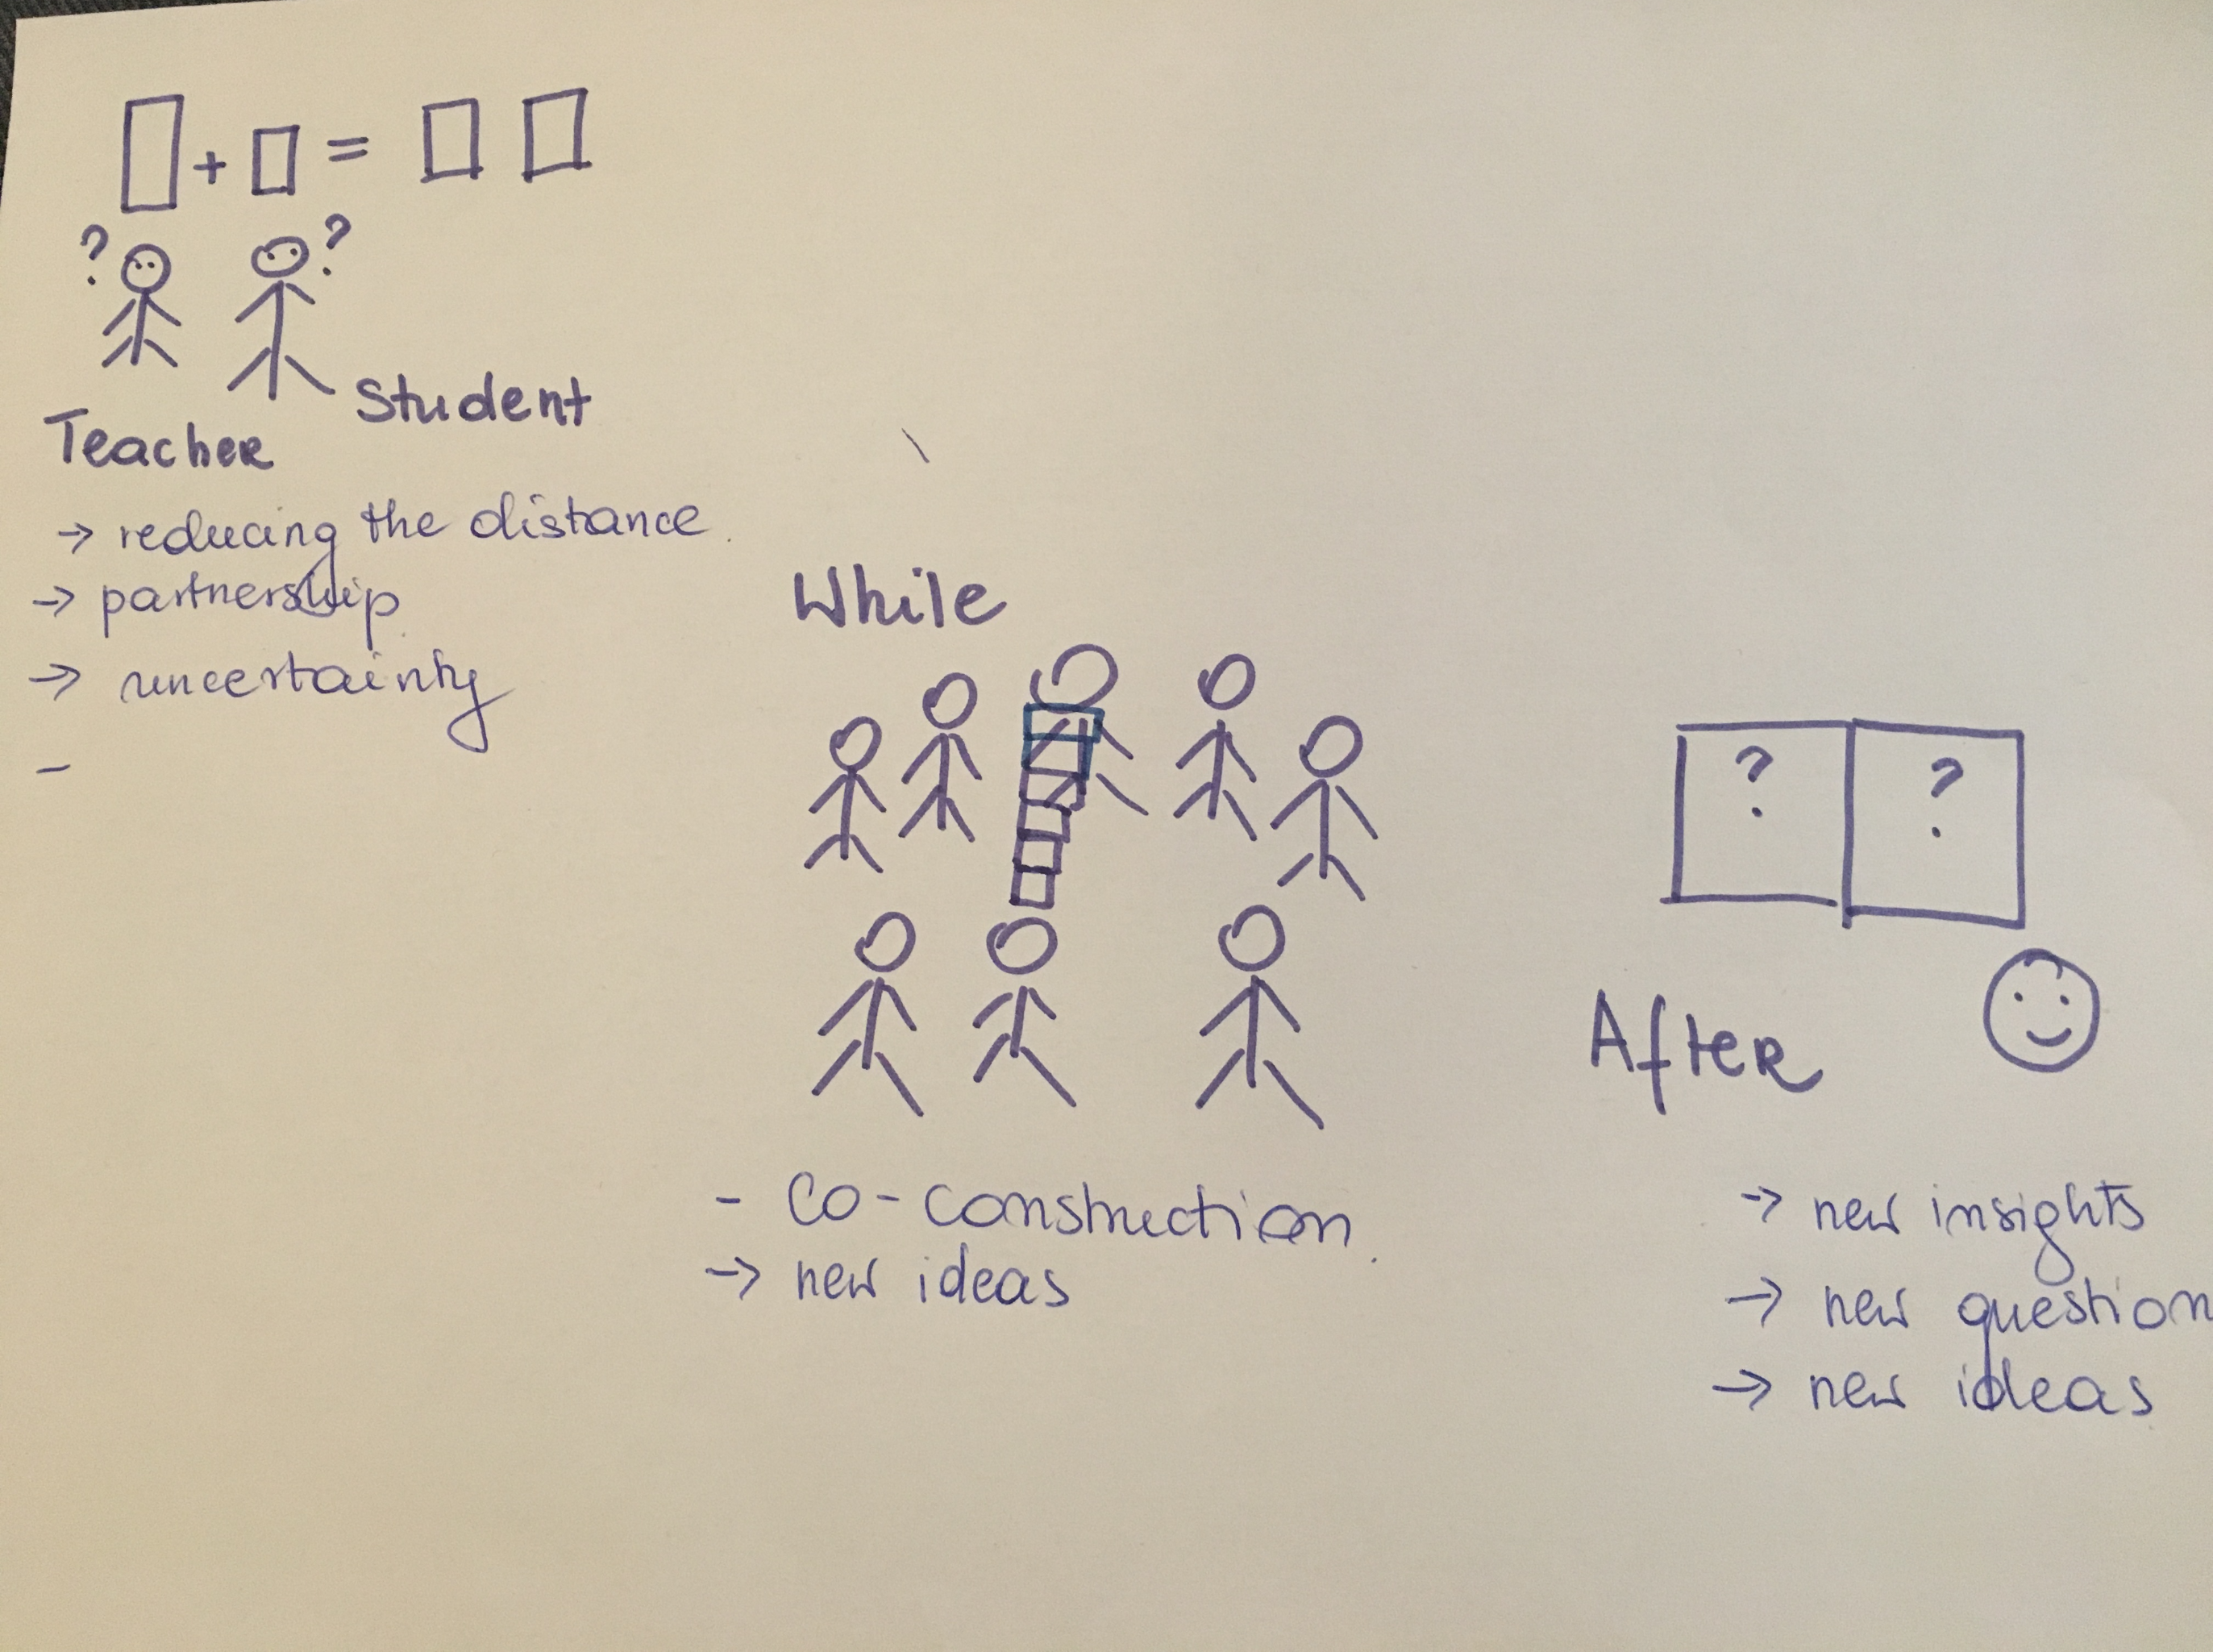 + =
? ?
Student
Teacher
→ reducing the distance.
→ partnership
→ uncertainty
-
While
? ?
After
- Co-construction.
→ new ideas
→ new insights
→ new question
→ new ideas